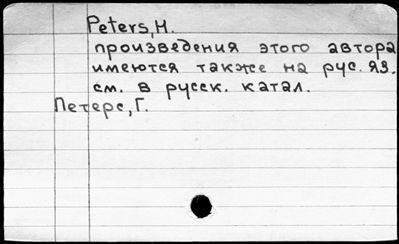 Peters, H.
произведения этого автора
имеются также на рус. яз.
см. в русск. катал.
Петерс, Г.